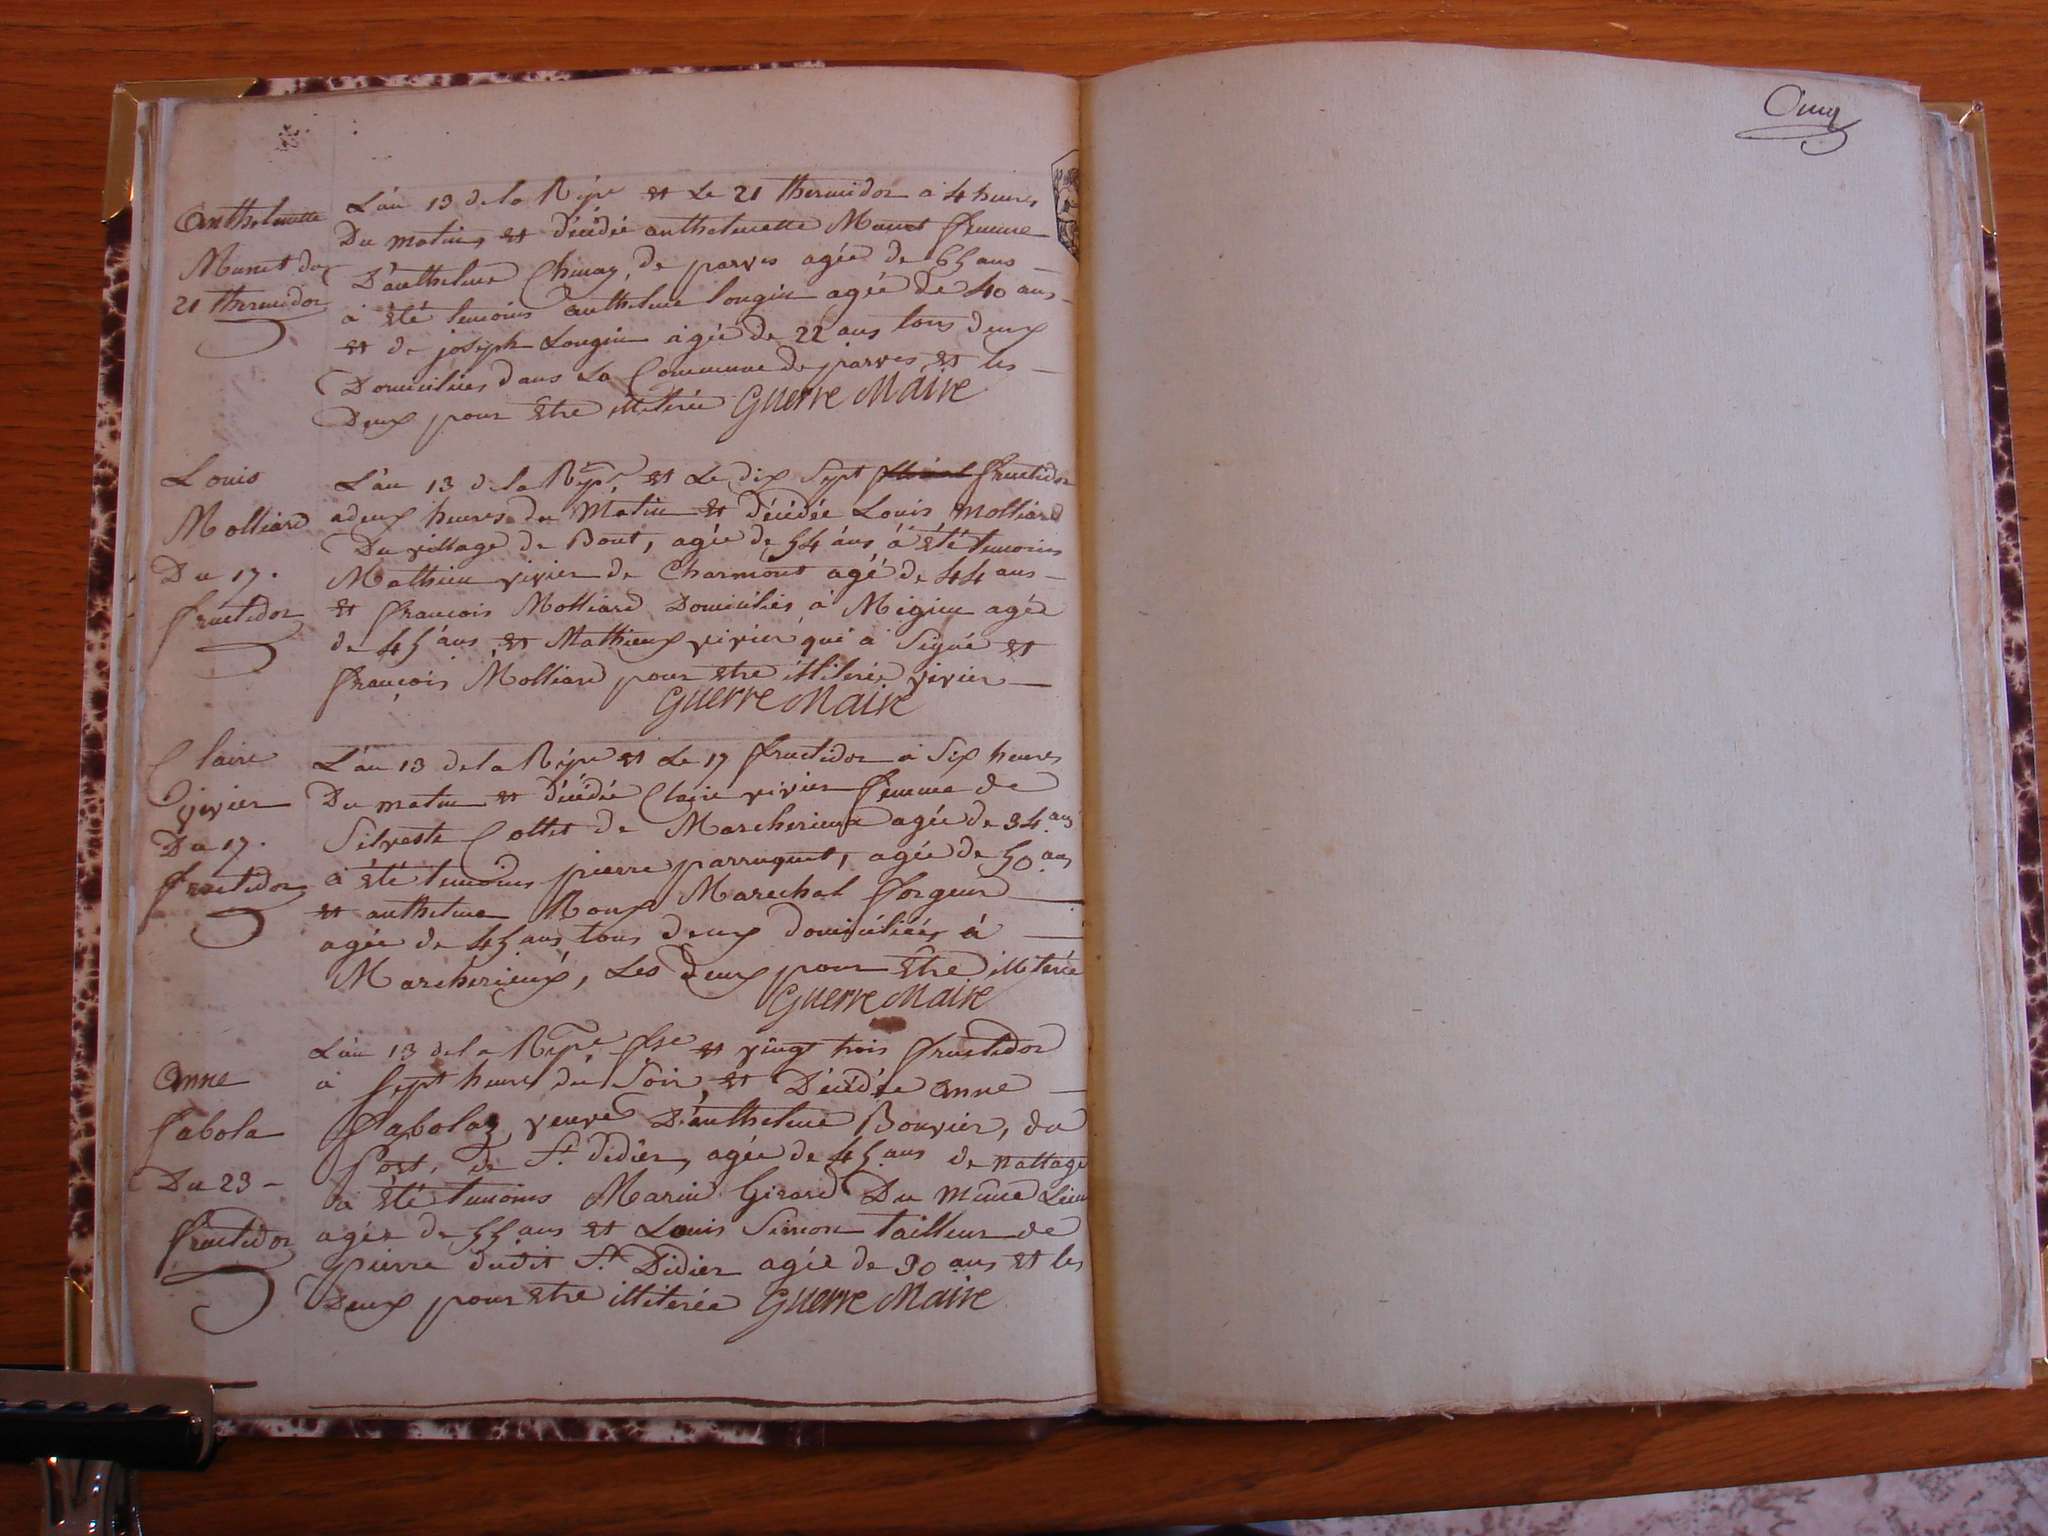 Anthelmette
Munet du
21 thermidor
L'an 13 de la Répe et Le 21 thermidor a 4 heures
Du matin, et décédée anthelmette Munet femme
D'anthelme Chinay, de parves agée de 65 ans
à été temoins anthelme Longin agée de 40 ans
et de joseph Longin agée de 22 ans tous deux
Domicilies dans La Commune de parves et les
Deux pour être illiterée Guerre Maire
Louis
Molliard
Du 17.
fructidor
L'an 13 de la Répe et Le dix Sept fructidor
a deux heures du Matin et décédée Louis Molliard
Du village de Bout, agée de 54 ans, à été temoins
Mathieu vivier de Charmont agé de 44 ans
et françois Molliard Domicilies à Migieu agée
de 45 ans, et Mathieux vivier qui à Signé et
françois Molliard pour être illiterée vivier
Guerre Maire
Claire
vivier
Du 17.
fructidor
L'an 13 de la Répe et Le 17 fructidor a Six heures
Du matin et décédée Claire vivier femme de
Silveste Collet de Marcherieux agée de 34 ans
à été temoins pierre parruquet, agée de 50 ans
et anthelme Roux Marechal forgeur
agée de 45 ans tous deux domiciliées à
Marcherieux, Les deux pour être illiterée
Guerre Maire
Anne
fabola
Du 23
fructidor
L'an 13 de la Répe fse et vingt trois fructidor
a sept heures du Soir, et Décédée anne
fabolaz, veuve D'anthelme Bouvier, du
port, de St didier, agée de 45 ans de nattage
à été temoins Marin Girard Du même Lieu
agée de 55 ans et Louis Simon tailleur de
pierre dudit St Didier agée de 30 ans et les
Deux pour être illiterée Guerre Maire
Cinq